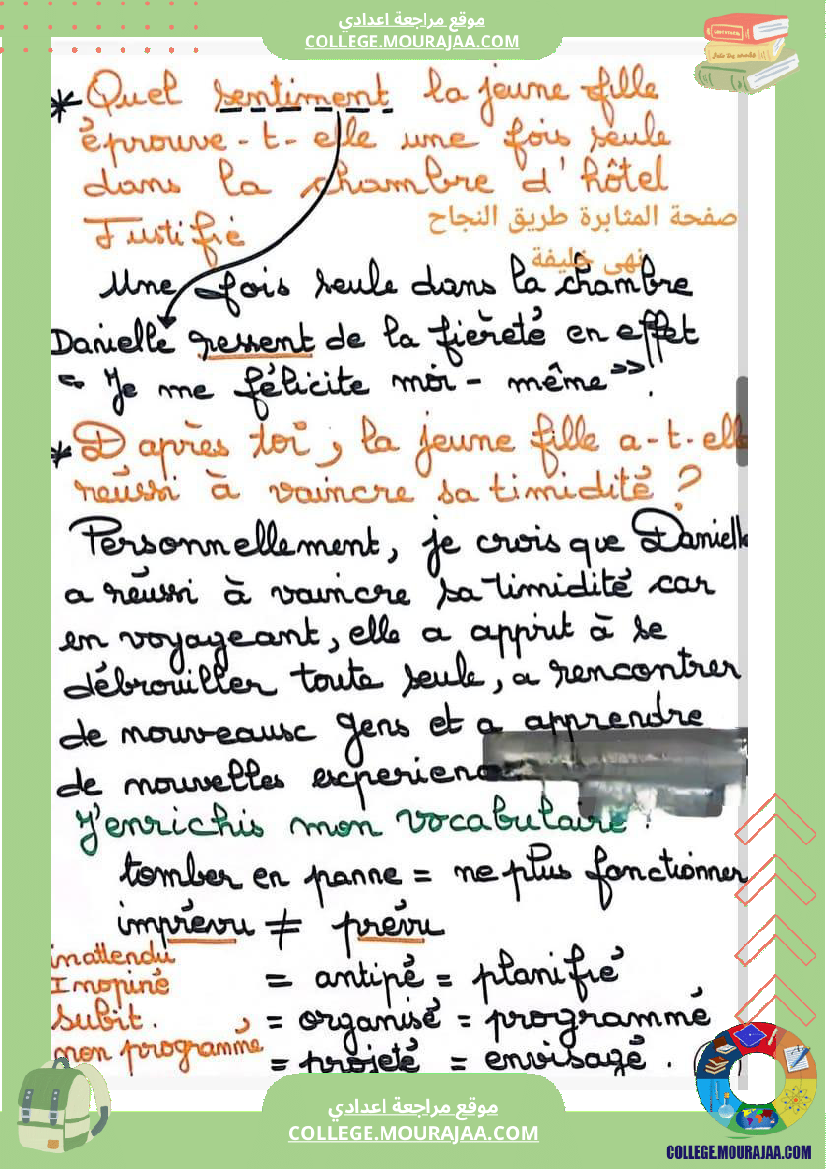 موقع مراجعة اعدادي
COLLEGE.MOURAJAA.COM
* Quel sentiment la jeune fille
éprouve-t-elle une fois seule
dans la chambre d'hôtel
Justifié
صفحة المثابرة طريق النجاح
نهى خليفة
Une fois seule dans la chambre
Danielle ressent de la fièreté en effet
"Je me félicite moi-même".
* D'après toi, la jeune fille a-t-elle
réussi à vaincre sa timidité ?
Personnellement, je crois que Daniell
a réussi à vaincre sa timidité car
en voyageant, elle a apprit à se
débrouiller toute seule, a rencontrer
de nouveaux gens et a apprendre
de nouvelles experien
J'enrichis mon vocabulaire.
tomber en panne = ne plus fonctionner
imprévu ≠ prévu
inattendu
Inopiné
subit.
non programmé
= antipé = planifié
= organisé = programmé
= projeté = envisagé.
موقع مراجعة اعدادي
COLLEGE.MOURAJAA.COM
COLLEGE.MOURAJAA.COM